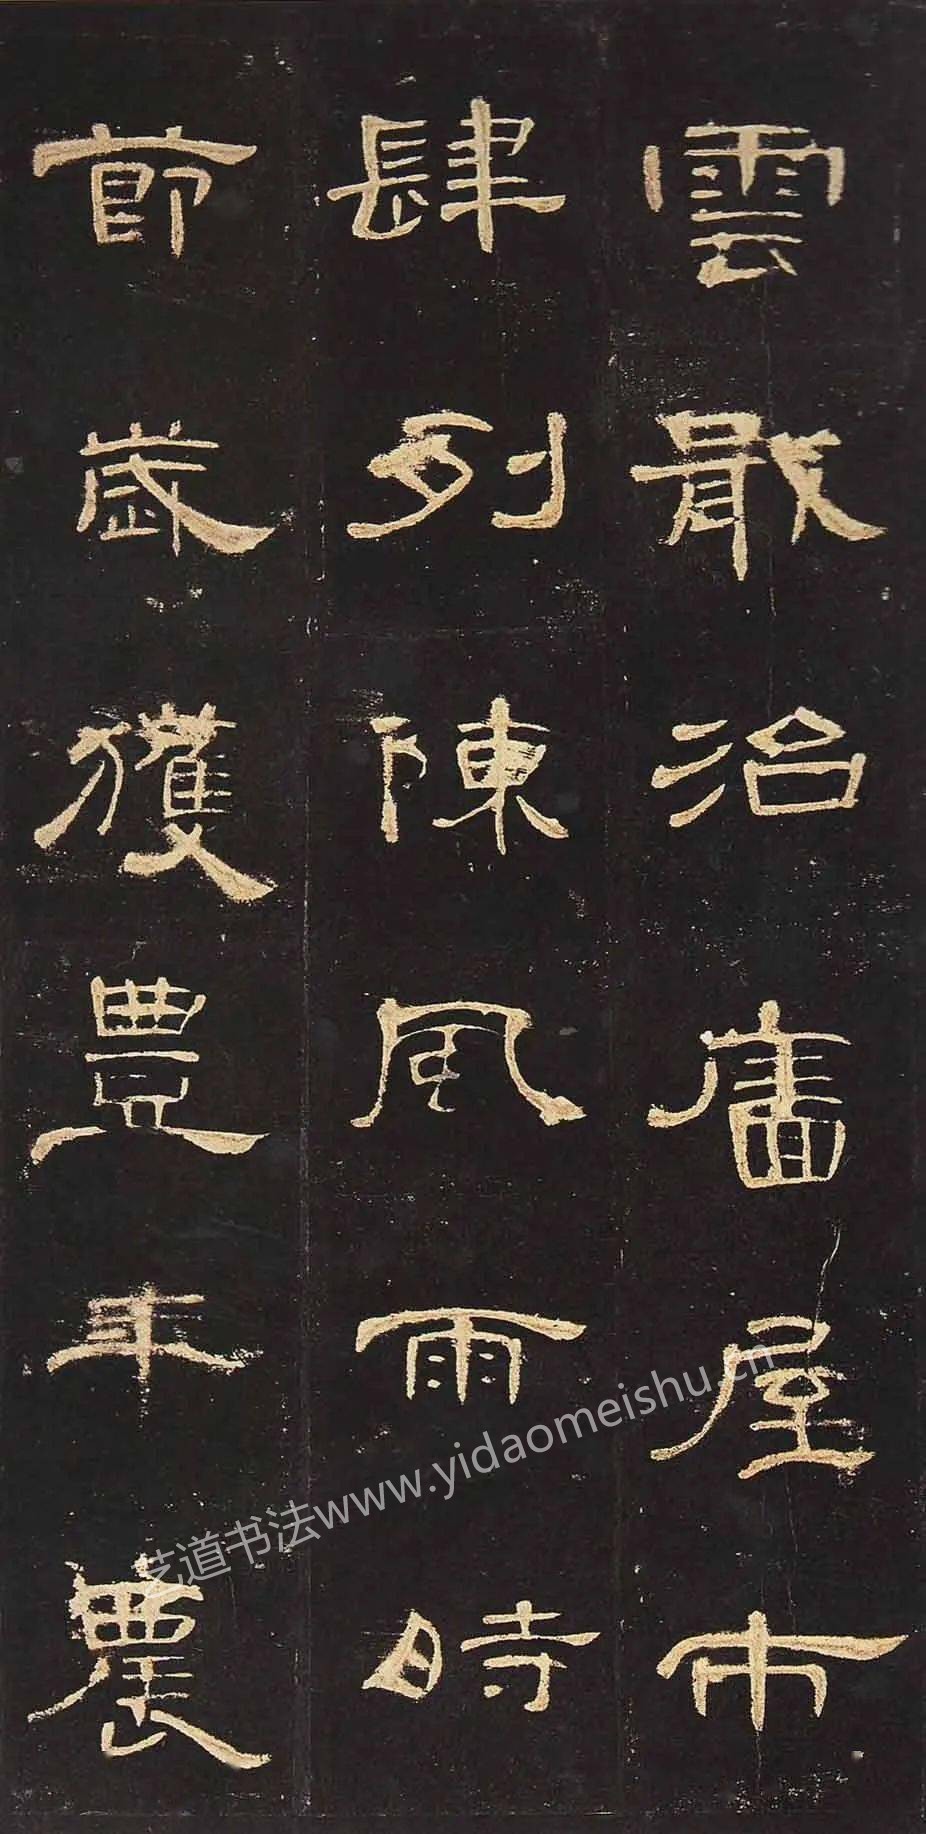 雲散治廧屋市
肆列陳風雨時
莭歲獲豊年農
艺道书法www.yidaomeishu.cn